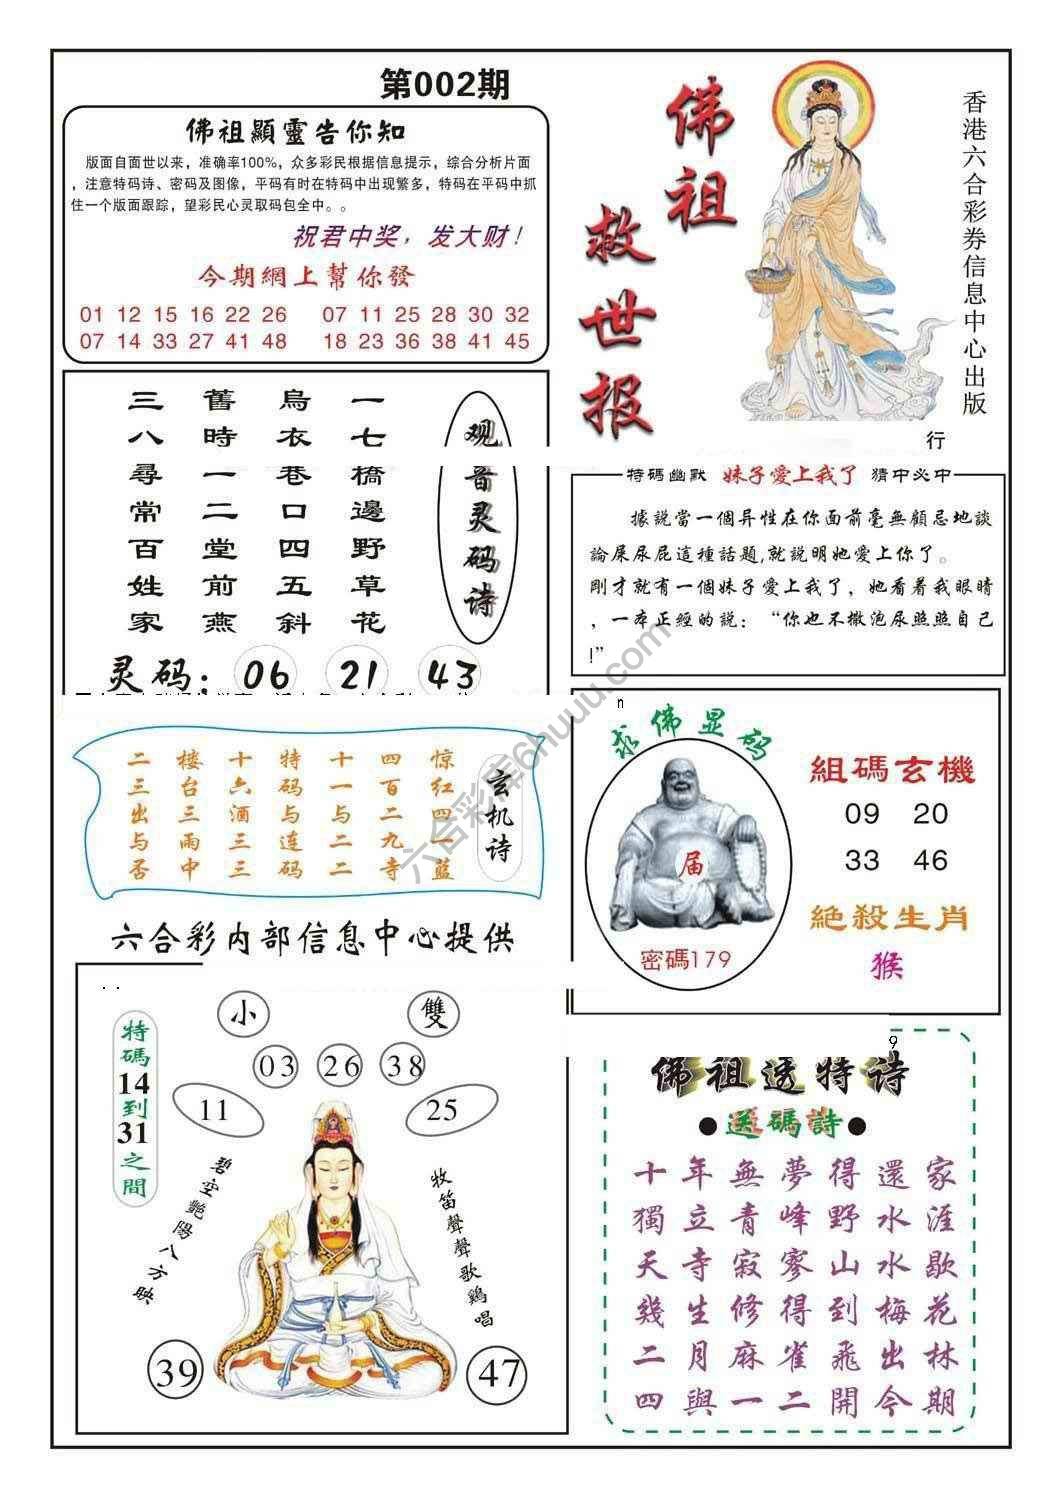 第002期
佛祖顯靈告你知
版面自面世以来，准确率100%，众多彩民根据信息提示，综合分析片面
，注意特码诗、密码及图像，平码有时在特码中出现繁多，特码在平码中抓
住一个版面跟踪，望彩民心灵取码包全中。。
祝君中奖，发大财！
今期網上幫你發
01 12 15 16 22 26 07 11 25 28 30 32
07 14 33 27 41 48 18 23 36 38 41 45
佛祖
救世报
香港六合彩券信息中心出版
行
观音灵码诗
一七橋邊野草花
烏衣巷口四五斜
舊時一二堂前燕
三八尋常百姓家
灵码：06 21 43
特碼幽默 妹子愛上我了 猜中必中
據說當一個异性在你面前毫無顧忌地談
論屎尿屁這種話題,就説明她愛上你了。
剛才就有一個妹子愛上我了，她看着我眼睛
，一本正經的説：“你也不撒泡尿照照自己
!”
n
玄机诗
惊红四一蓝
四百二九寺
十一与二二
特码与连码
十六酒三三
楼台三雨中
二三出与否
求佛显码
届
密碼179
組碼玄機
09 20
33 46
絶殺生肖
猴
六合彩内部信息中心提供
特碼14到31之間
小 雙
03 26 38
11 25
碧空艷陽八方映
牧笛聲聲歌鷄唱
39 47
9
佛祖透特诗
●送碼詩●
十年無夢得還家
獨立青峰野水涯
天寺寂寥山水歇
幾生修得到梅花
二月麻雀飛出林
四與一二開今期
六合彩库6huuu.com